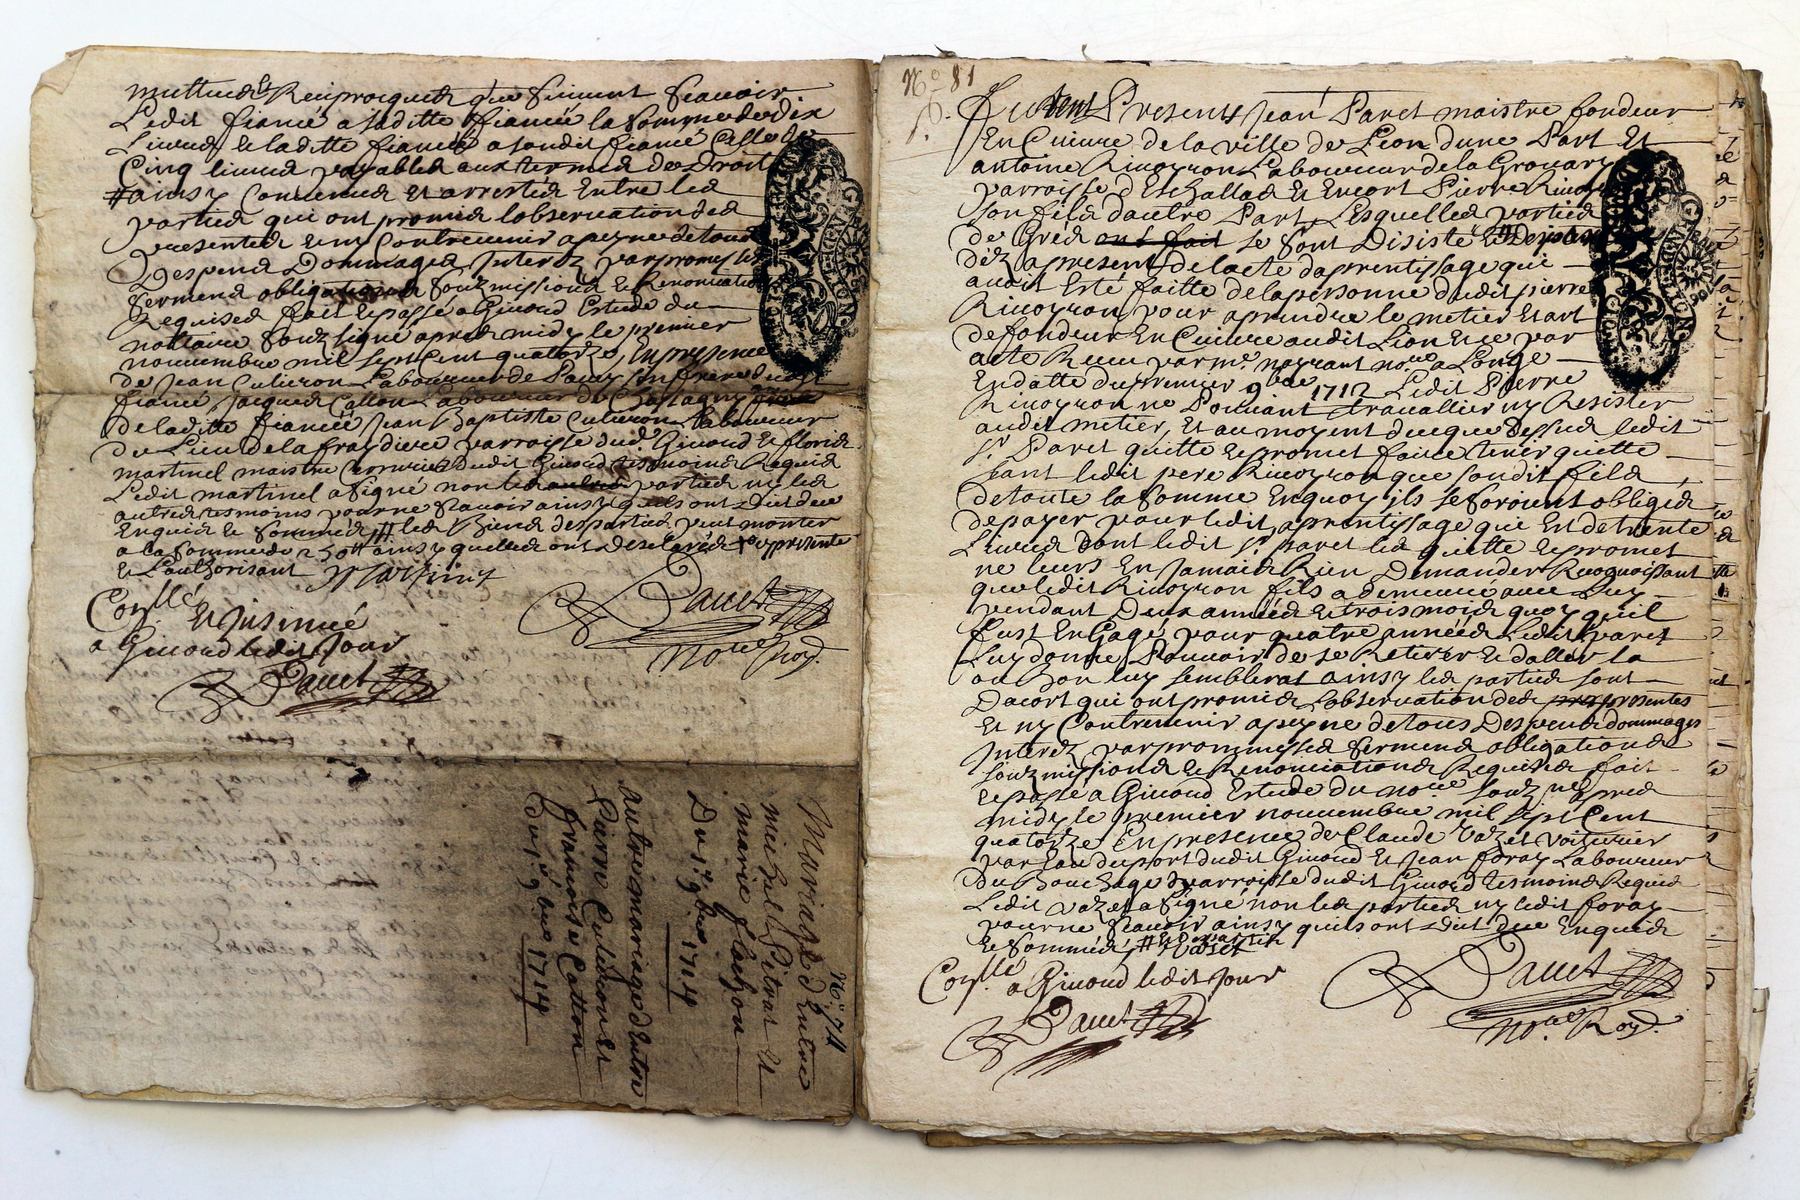 mutuelle Reciproque que feront scavoir
Ledit fiancé a laditte fiancée la somme de dix
Livres & laditte fiancée a sondit fiancé celle de
Cinq livres payables aux termes de Droit
# ainsy Convenus Et arrestés Entre les
parties qui ont promis lobservation des
presentes & ny Contrevenir a peyne de tous
Despens Dommages Interez par promesses
serments obligations Soubzmissions & Renonciations
Requises fait & passé a Givord Estude du
nottaire Soubsigné apres midy le premier
novembre mil sept Cent quatorze, En presence
de Jean Culieron Laboureur de son frere dudit
fiancé, Jacques Catton Laboureur de Chassagny
de laditte fiancée Jean Baptiste Culieron Laboureur
du Lieu de la fraydiere parroisse dud. Givord & 
martinel maistre dudit Givord tesmoins Requis
Ledit martinel a signé non les autres parties ny les
autres tesmoins pour ne scavoir ainsy quils ont Dit de ce
Enquis & Sommés # les biens des parties peut monter
a la somme de ainsy quelles ont Desclaré
& Lauthorisant Martinel
Conllé & Insinué
a Givord ledit Jour
Nore Roy.
No. 74
Mariage d'Entre
michel Pitrat Et
marie flachon
Du 1er 9bre 1714
autre mariage d'Entre
Pierre Culieron Et
francoise Catton
du 1er 9bre 1714
No. 81
Furent Presents Jean Paret maistre fondeur
En Cuivre de la ville de Lion dune Part Et
antoine Rivoyron Laboureur de la
parroisse d'Eschallas & Encort Pierre Rivoyron
son fils dautre Part, Lesquelles parties
de Gred ont fait se sont Disisté & Depart
dez a present de lacte daprentissage qui
avoit Esté faitte de la personne dudit pierre
Rivoyron pour aprendre le metier Et art
de fondeur En Cuivre audit Lion & ce par
acte Receu par me. nore. a Longe
En datte du premier 9bre 1712 Ledit Pierre
Rivoyron ne Pouvant travallier ny Resister
audit metier, Et au moyent de ce que Dessus ledit
sr. Paret quitte & promet faire tenir quitte
tant ledit pere Rivoyron que sondit fils
de toute la somme En quoy ils se seroient obligés
de payer pour ledit aprentissage que Est de trente
Livres dont ledit sr. paret les quitte & promet
ne leurs En Jamais Rien Demander Recognoissant
que ledit Rivoyron fils a demeuré avec Luy
pendant Deux années & trois mois quoy quil
fust Engagé pour quatre années Ledit paret
Luy donne Pouvoir de se Retirer & daller la
ou bon luy semblerat ainsy les parties sont
Dacort qui ont promis Lobservation des presentes
Et ny Contrevenir a peyne de tous Despens dommages
Interez par prommesses serments obligations
soubzmissions & Renonciations Requises fait
& passé a Givord Estude du nore soubzné apres
midy le premier novembre mil sept Cent
quatorze En presence de Claude Vazet voiturier
par Eau du port dudit Givord Et Jean foray Laboureur
du bouchage parroisse dudit Givord tesmoins Requis
Ledit vazet a Signé non les parties ny ledit foray
pour ne scavoir ainsy quils ont Dit de ce Enquis
& Sommés
Conllé a Givord ledit Jour
Nore Roy.